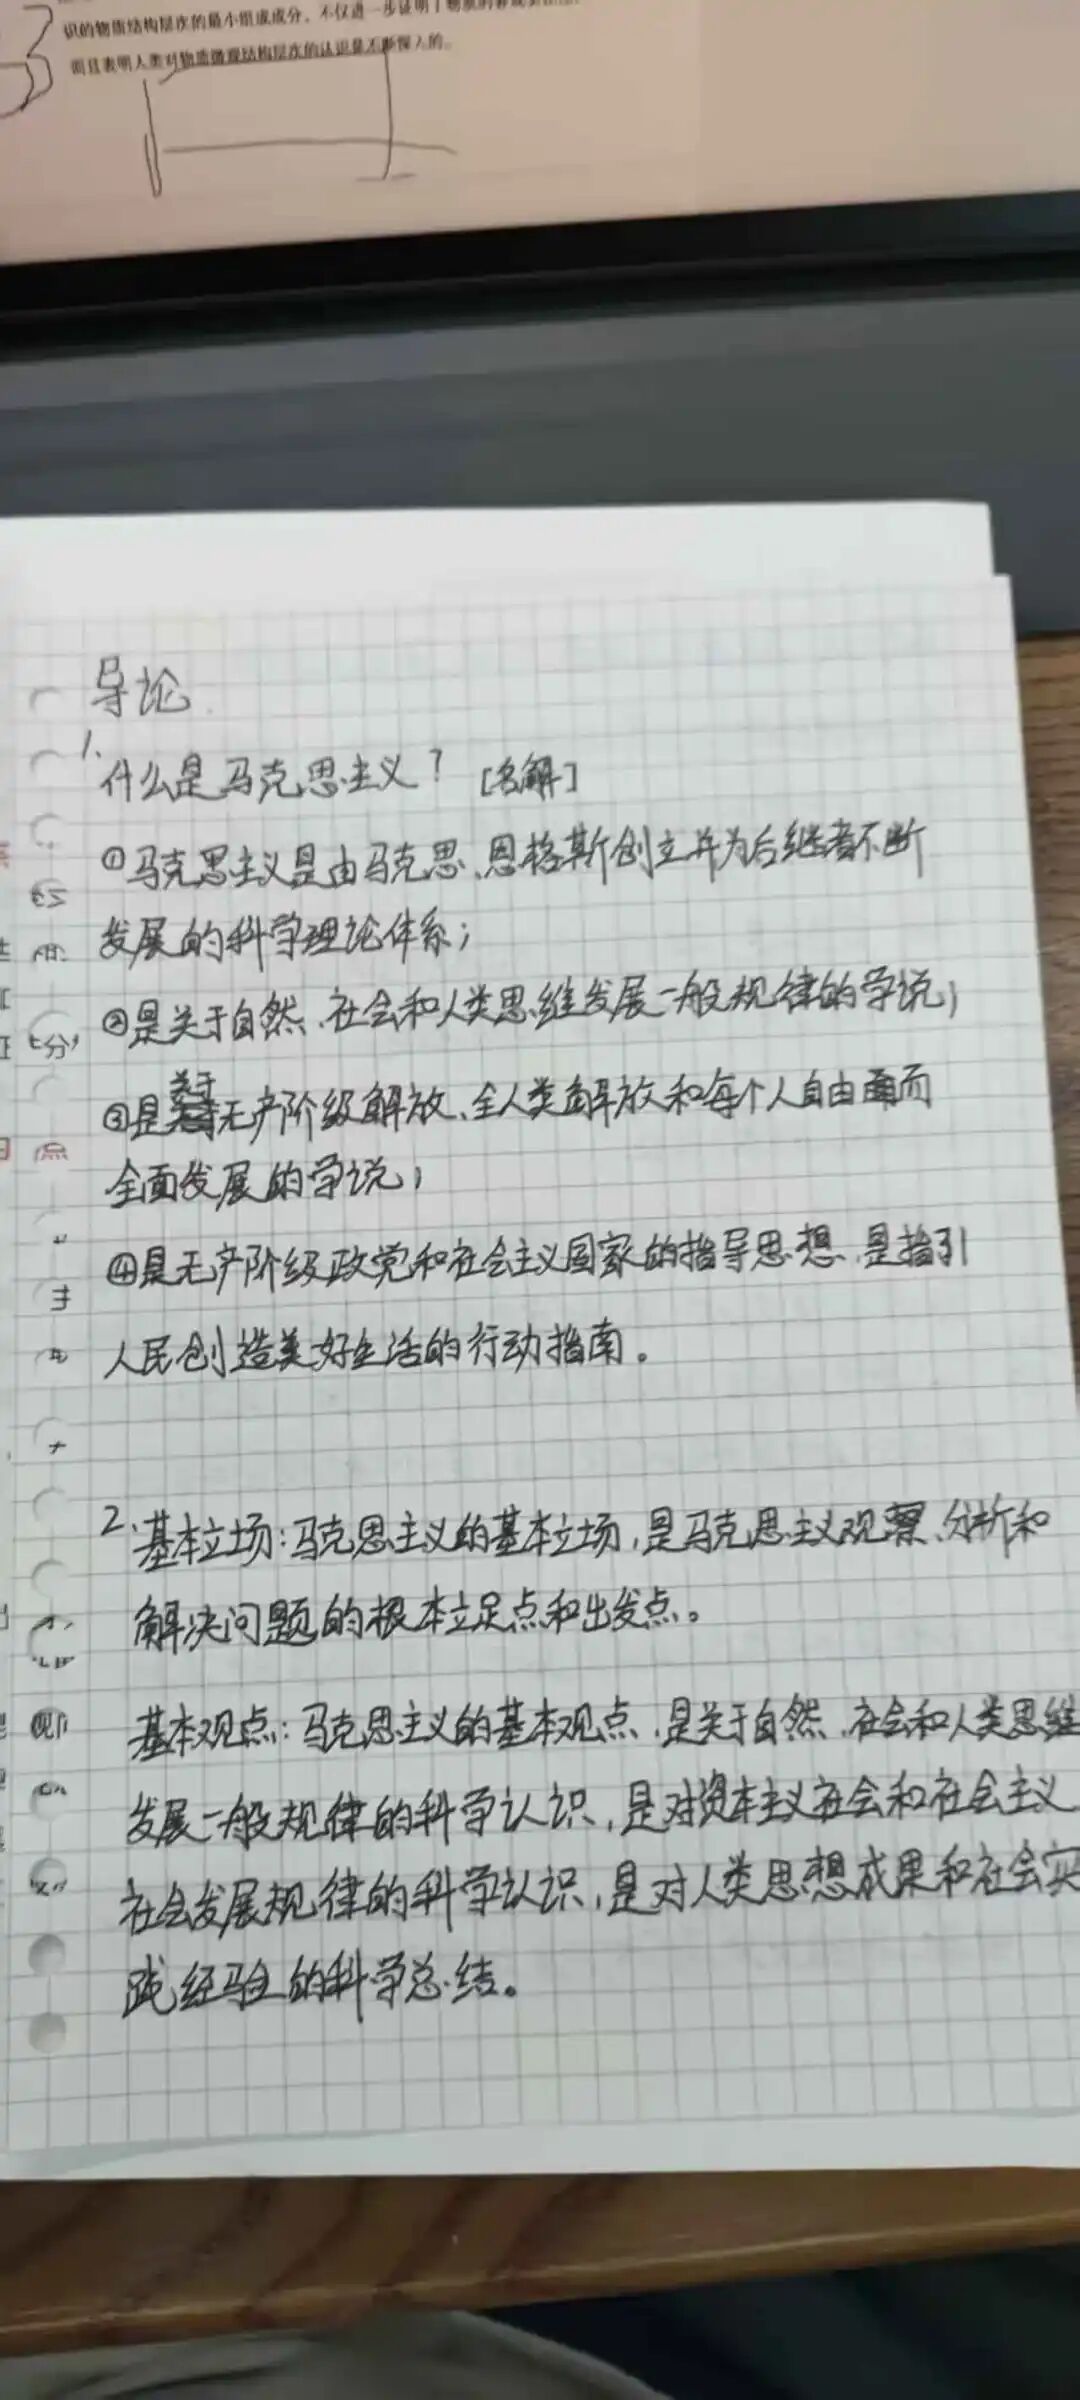 识的物质结构层次的最小组成成分，不仅进一步证明了物质的
而且表明人类对物质微观结构层次的认识是不断深入的。
导论
1.
什么是马克思主义？ [名解]
①马克思主义是由马克思、恩格斯创立并为后继者不断
发展的科学理论体系；
②是关于自然、社会和人类思维发展一般规律的学说；
关于
③是无产阶级解放、全人类解放和每个人自由而
全面发展的学说；
④是无产阶级政党和社会主义国家的指导思想，是指引
人民创造美好生活的行动指南。
2.基本立场：马克思主义的基本立场，是马克思主义观察、分析和
解决问题的根本立足点和出发点。
基本观点：马克思主义的基本观点，是关于自然、社会和人类思维
发展一般规律的科学认识，是对资本主义社会和社会主义
社会发展规律的科学认识，是对人类思想成果和社会实
践经验的科学总结。